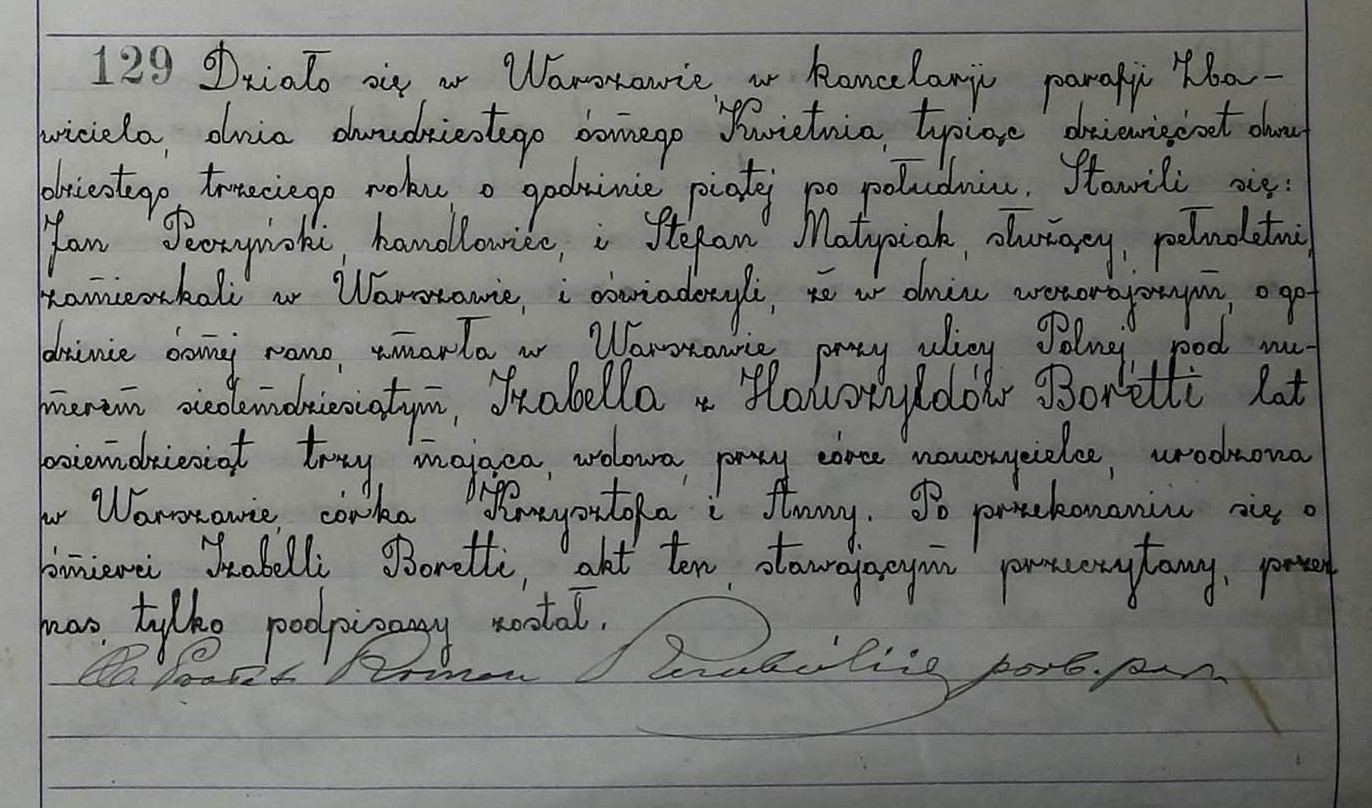 129 Działo się w Warszawie, w kancelarji parafji Zba-
wiciela, dnia dwudziestego ósmego Kwietnia, tysiąc dziewięćset dwu-
dziestego trzeciego roku, o godzinie piątej po południu. Stawili się:
Jan Peczyński, handlowiec, i Stefan Matysiak, służący, pełnoletni,
zamieszkali w Warszawie, i oświadczyli, że w dniu wczorajszym, o go-
dzinie ósmej rano, zmarła w Warszawie przy ulicy Polnej, pod nu-
merem siedemdziesiątym, Izabella z Hauszyldów Boretti lat
osiemdziesiąt trzy mająca, wdowa, przy córce nauczycielce, urodzona
w Warszawie, córka Krzysztofa i Anny. Po przekonaniu się o
śmierci Izabelli Boretti, akt ten, stawającym przeczytany, przez
nas tylko podpisany został.
Roman